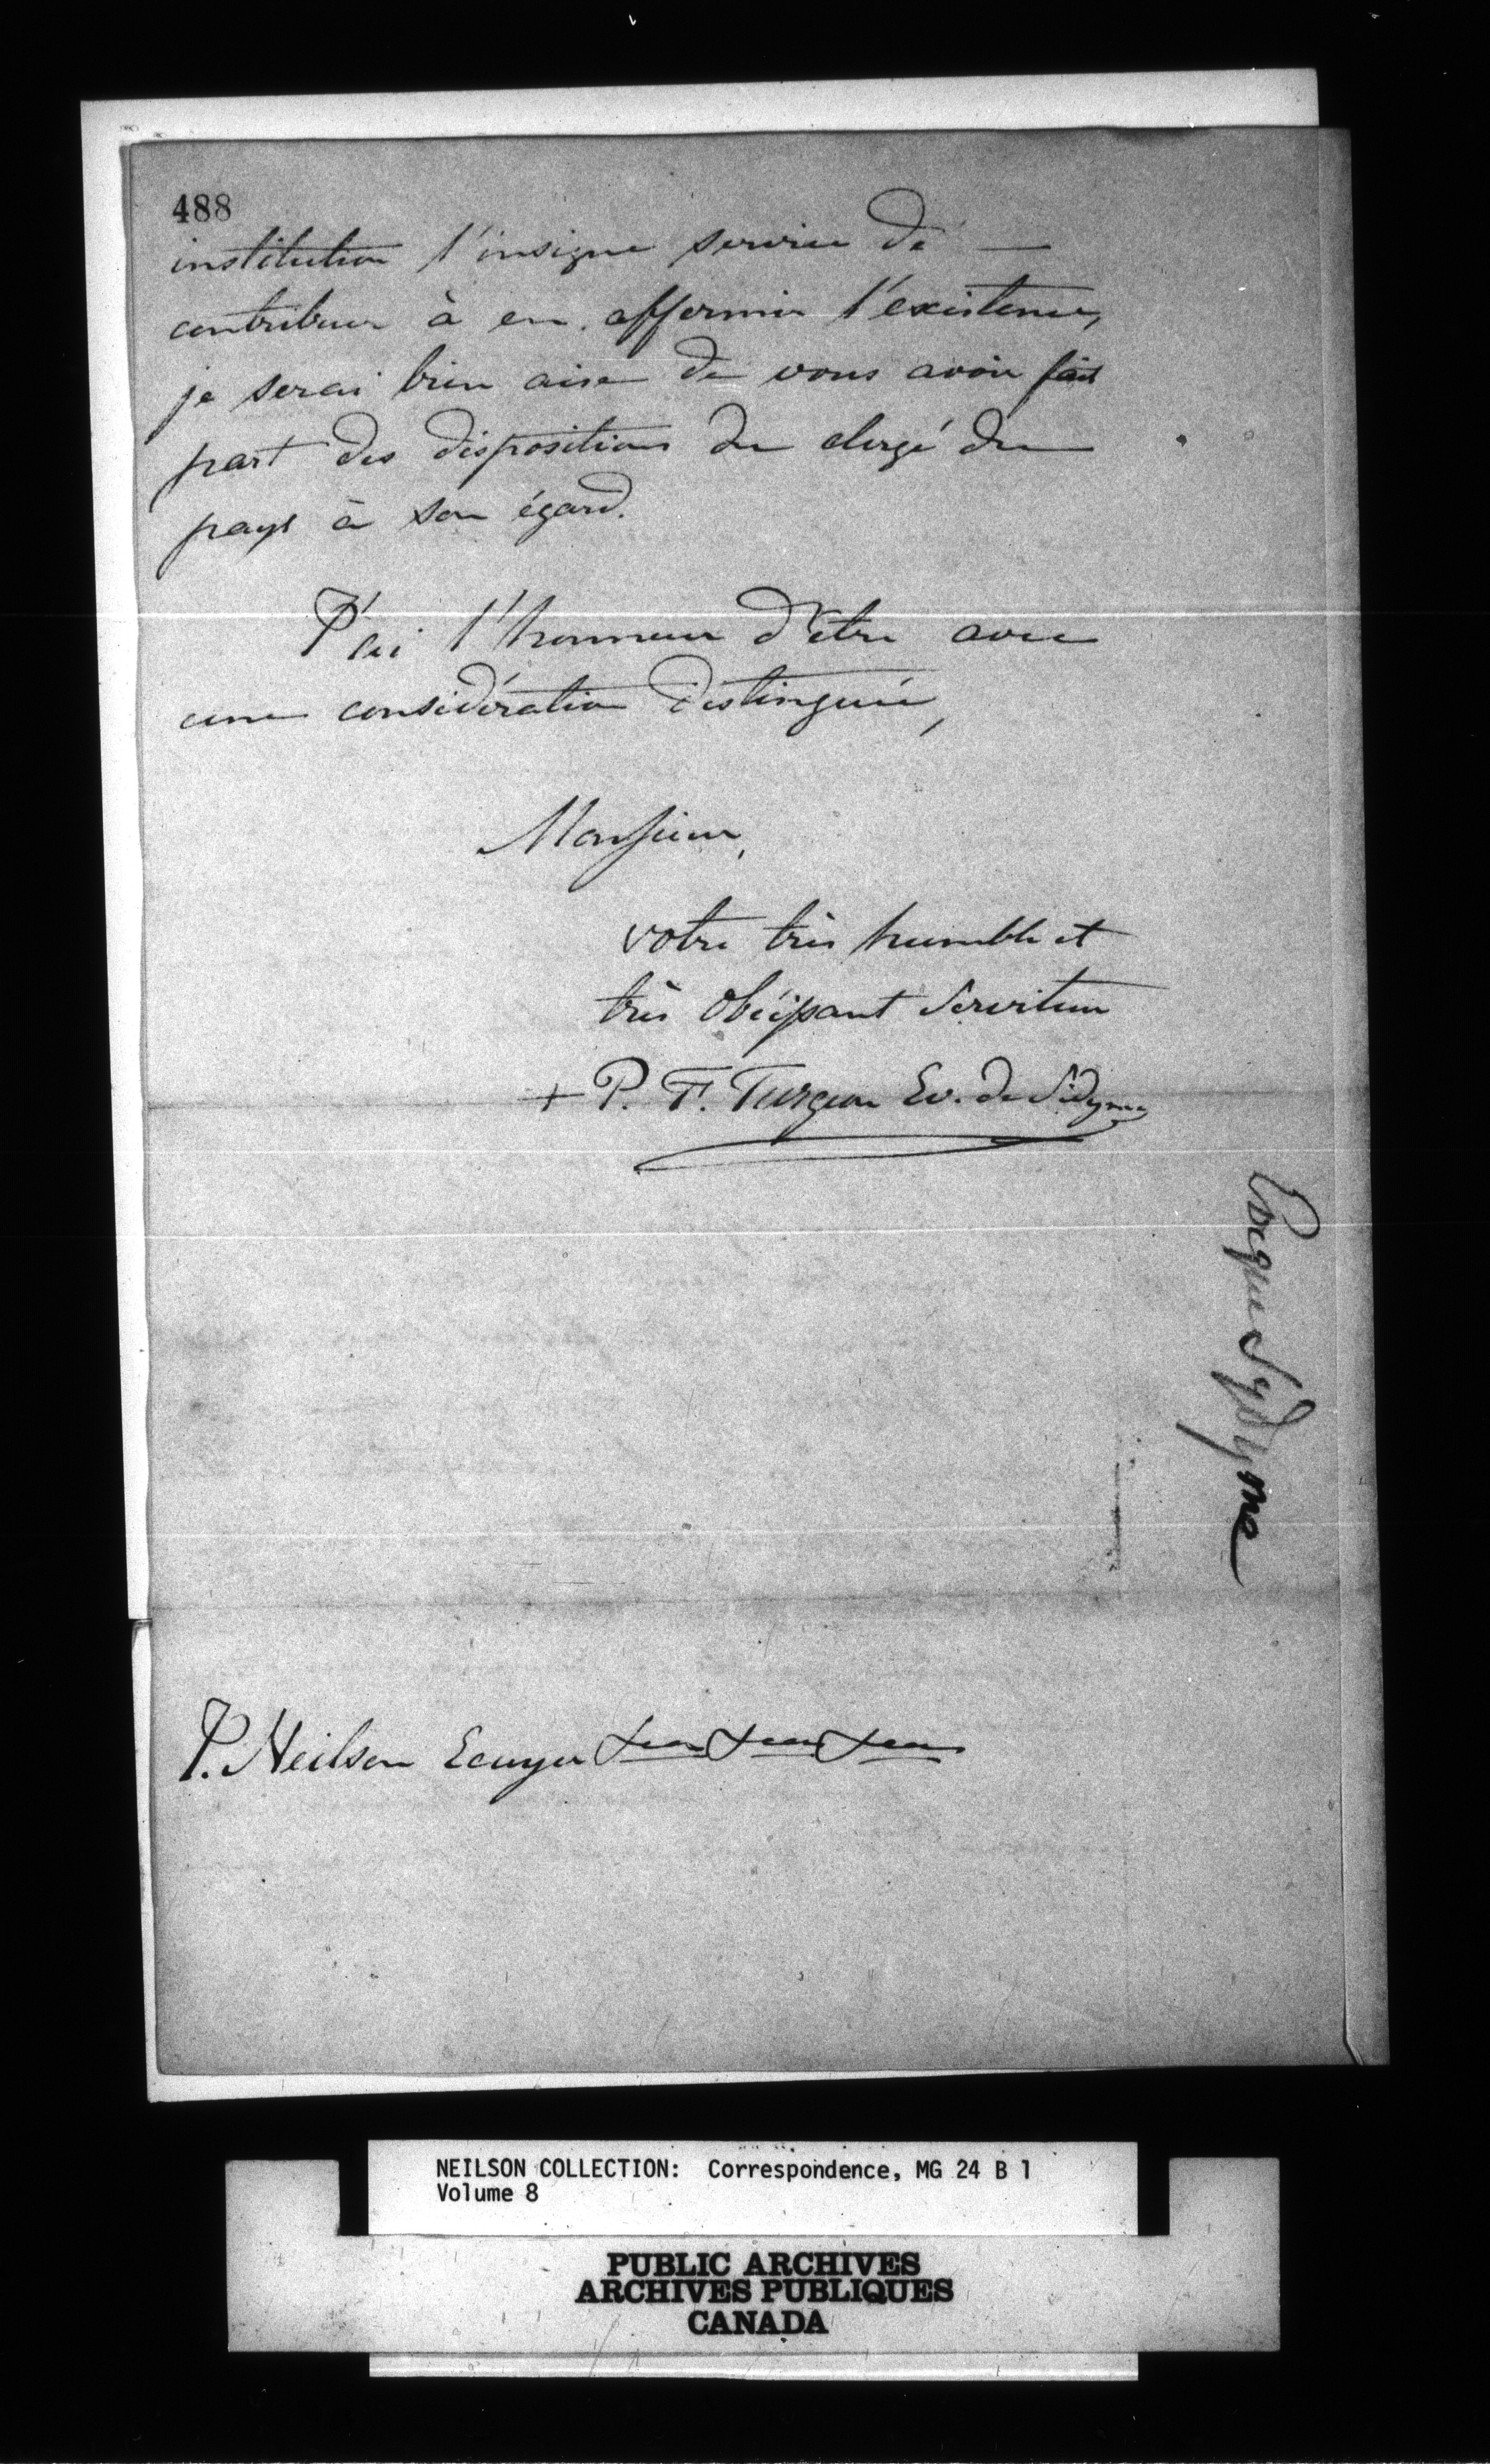 488
institution l'insigne service de —
contribuer à en affermir l'existence,
je serai bien aise de vous avoir fait
part des dispositions du clergé du
pays à son égard.
J'ai l'honneur d'être avec
une considération distinguée,
Monsieur,
votre très humble et
très obéissant Serviteur
+ P. F. Turgeon Ev. de Sidyme
Evêque Sydyme
J. Neilson Ecuyer
NEILSON COLLECTION: Correspondence, MG 24 B 1
Volume 8
PUBLIC ARCHIVES
ARCHIVES PUBLIQUES
CANADA